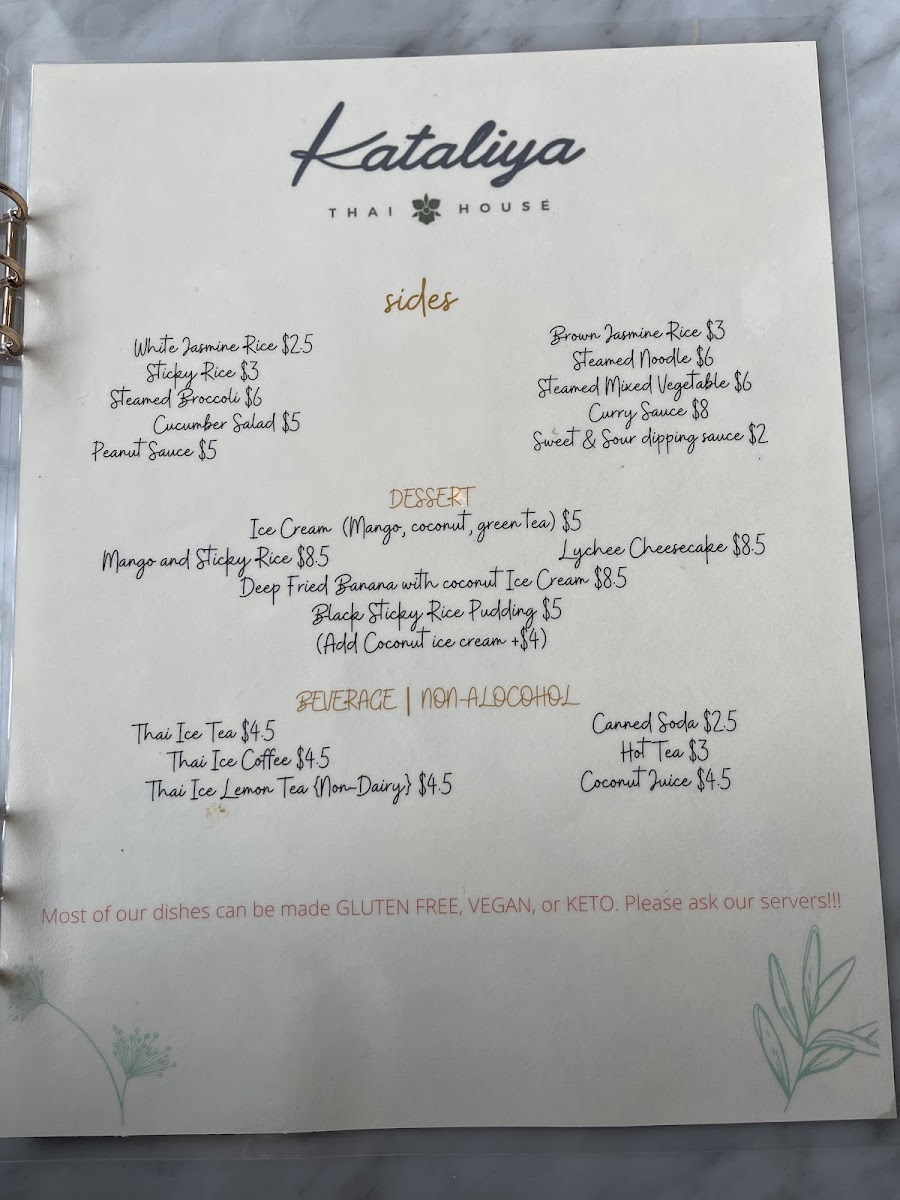 Kataliya
THAI HOUSE
sides
White Jasmine Rice $2.5
Sticky Rice $3
Steamed Broccoli $6
Cucumber Salad $5
Peanut Sauce $5
Brown Jasmine Rice $3
Steamed Noodle $6
Steamed Mixed Vegetable $6
Curry Sauce $8
Sweet & Sour dipping sauce $2
DESSERT
Ice Cream (Mango, coconut, green tea) $5
Mango and Sticky Rice $8.5
Lychee Cheesecake $8.5
Deep Fried Banana with coconut Ice Cream $8.5
Black Sticky Rice Pudding $5
(Add Coconut ice cream +$4)
BEVERAGE | NON-ALOCOHOL
Thai Ice Tea $4.5
Thai Ice Coffee $4.5
Thai Ice Lemon Tea {Non-Dairy} $4.5
Canned Soda $2.5
Hot Tea $3
Coconut Juice $4.5
Most of our dishes can be made GLUTEN FREE, VEGAN, or KETO. Please ask our servers!!!